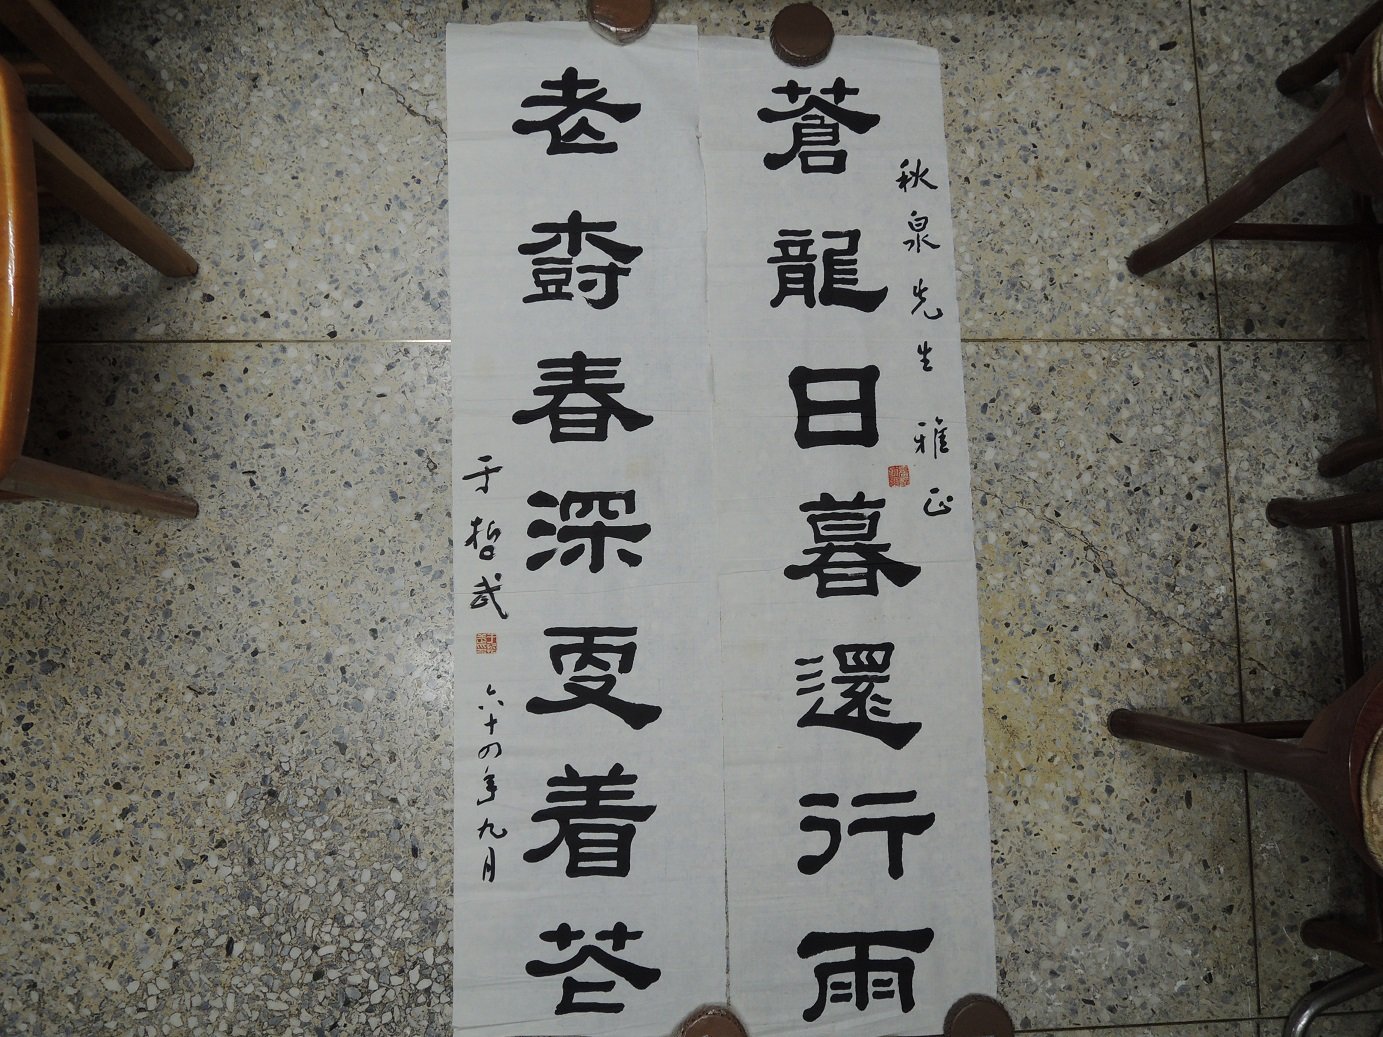 秋泉先生 雅正
蒼龍日暮還行雨
老樹春深更着花
于哲武
六十四年九月